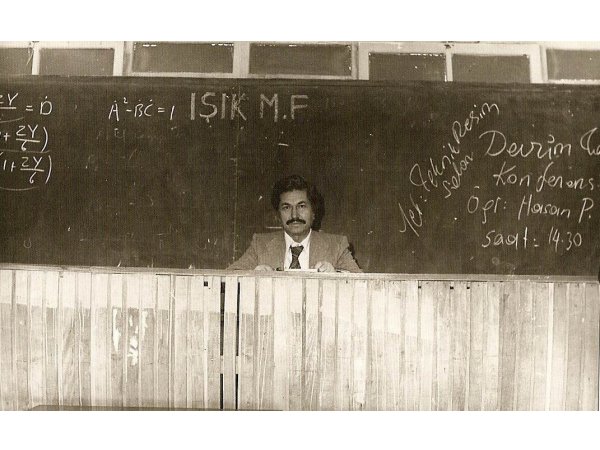 2Y = Ḋ
+ 2Y/6)
1+ 2Y/6)
Ȧ²-ḂĊ=1
IŞIK M.F
Yer: Teknik Resim
Salon
Devrim
Konferens
Ögr: Hasan P.
Saat: 14.30